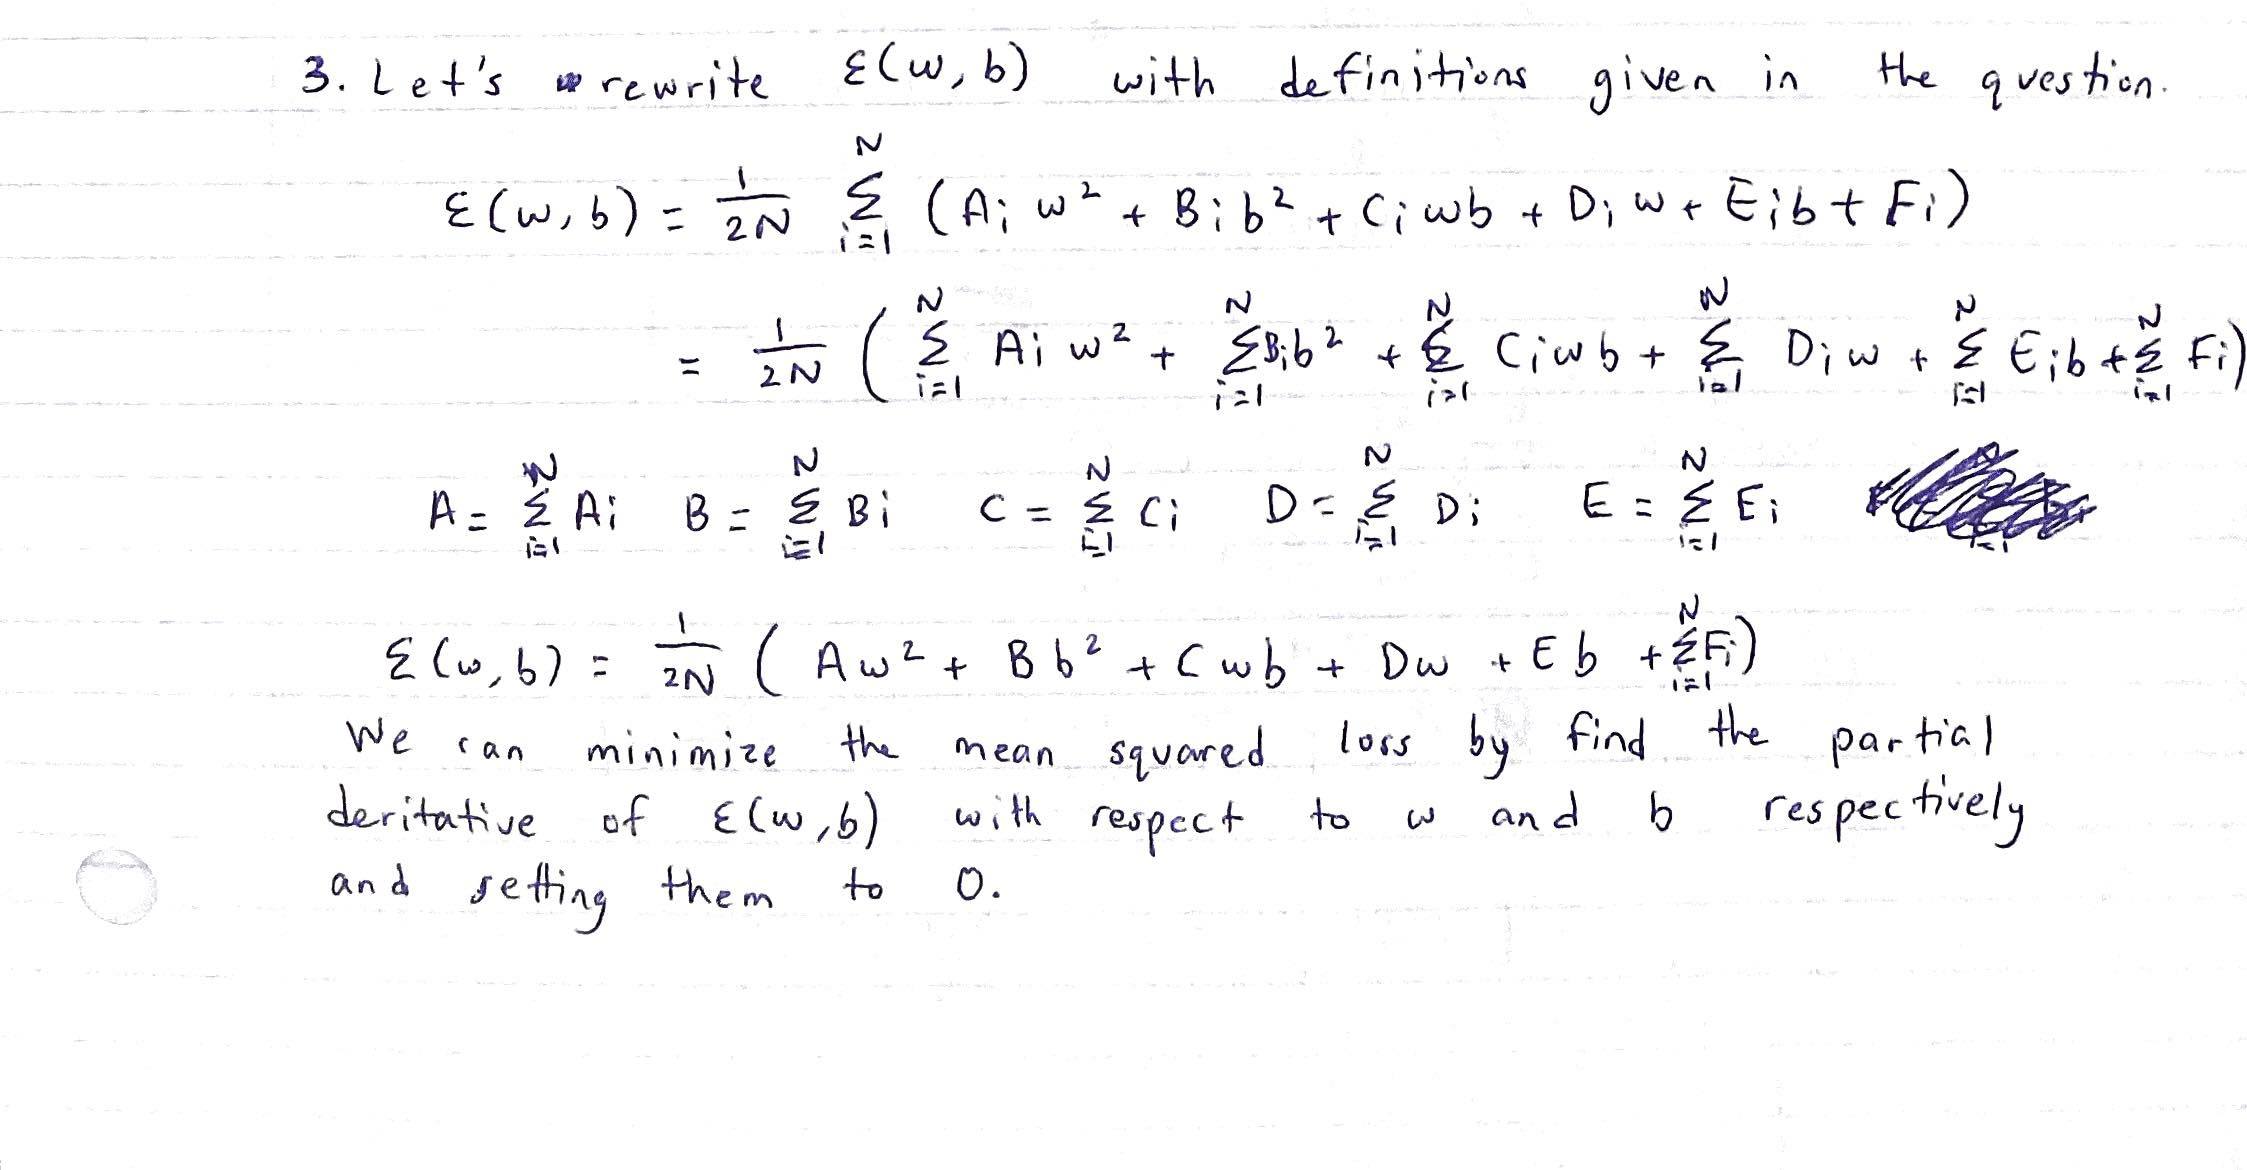 3. Let's rewrite ε(w, b) with definitions given in the question.
ε(w, b) = 1/2N Σ_{i=1}^{N} (A_i w² + B_i b² + C_i wb + D_i w + E_i b + F_i)
= 1/2N ( Σ_{i=1}^{N} A_i w² + Σ_{i=1}^{N} B_i b² + Σ_{i=1}^{N} C_i wb + Σ_{i=1}^{N} D_i w + Σ_{i=1}^{N} E_i b + Σ_{i=1}^{N} F_i)
A = Σ_{i=1}^{N} A_i B = Σ_{i=1}^{N} B_i C = Σ_{i=1}^{N} C_i D = Σ_{i=1}^{N} D_i E = Σ_{i=1}^{N} E_i
ε(w, b) = 1/2N ( A w² + B b² + C wb + Dw + E b + Σ_{i=1}^{N} F_i)
We can minimize the mean squared loss by find the partial
deritative of ε(w, b) with respect to w and b respectively
and setting them to 0.